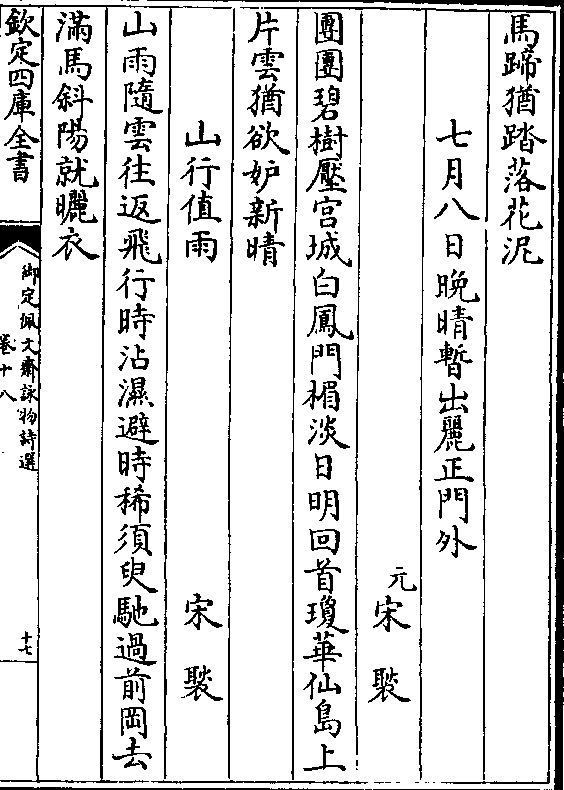 馬蹄猶踏落花泥
七月八日晚晴暫出麗正門外
元宋褧
團團碧樹壓宫城白鳳門楣淡日明回首瓊華仙島上
片雲猶欲妒新晴
山行值雨 宋褧
山雨隨雲往返飛行時沾濕避時稀須臾馳過前岡去
滿馬斜陽就曬衣
欽定四庫全書
御定佩文齋詠物詩選
卷十八
十七